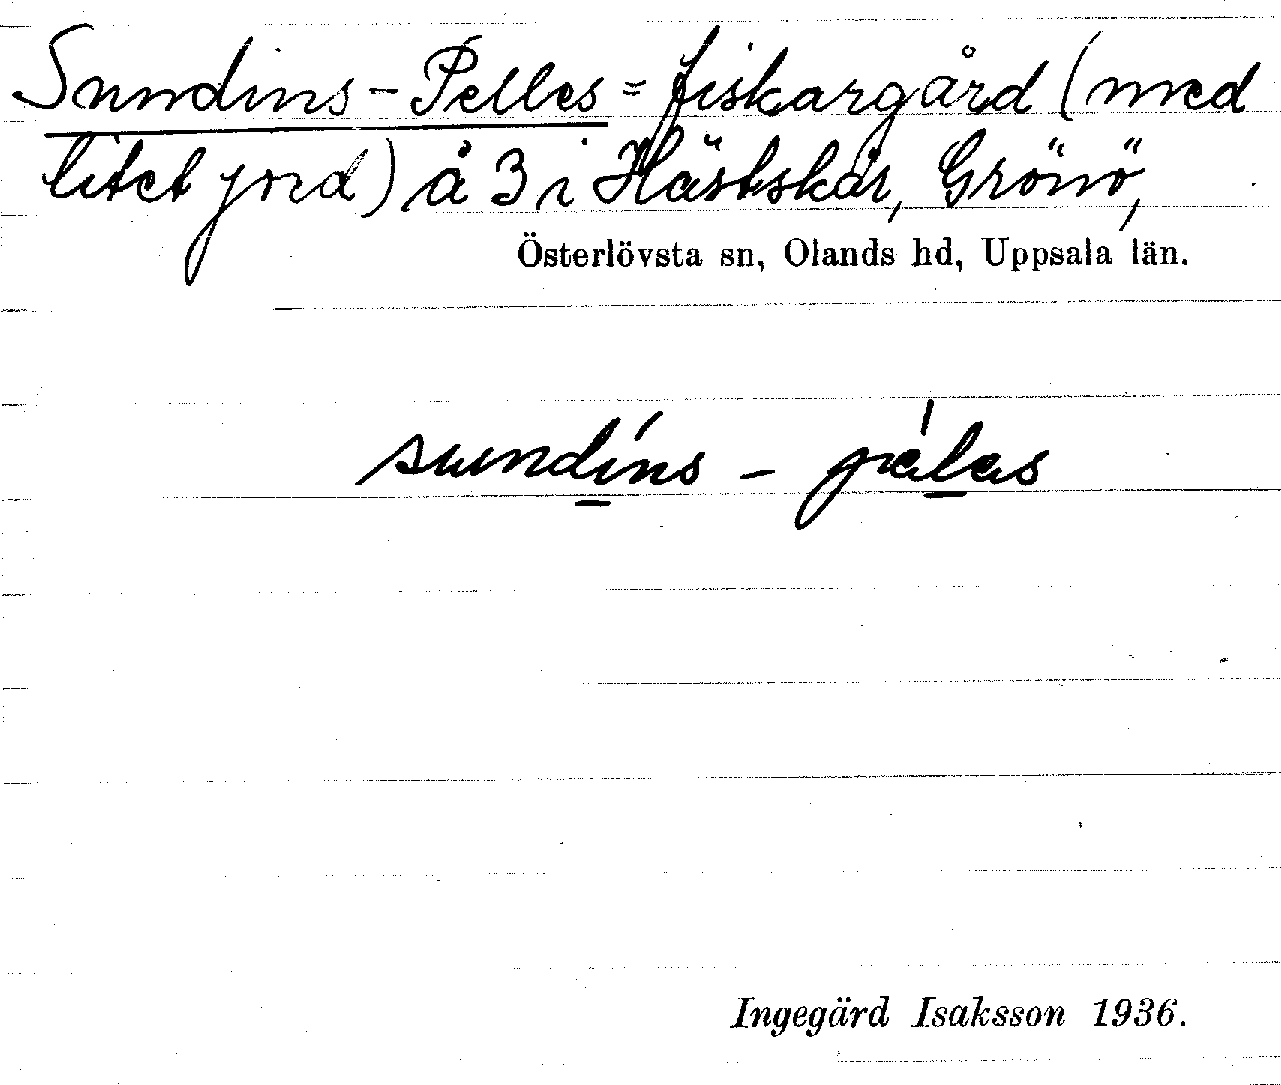 Sundins-Pelles = fiskargård (med
litet jord) å 3 i Hästskär, Grönö,
Österlövsta sn, Olands hd, Uppsala län.
sundíns - pélas
Ingegärd Isaksson 1936.